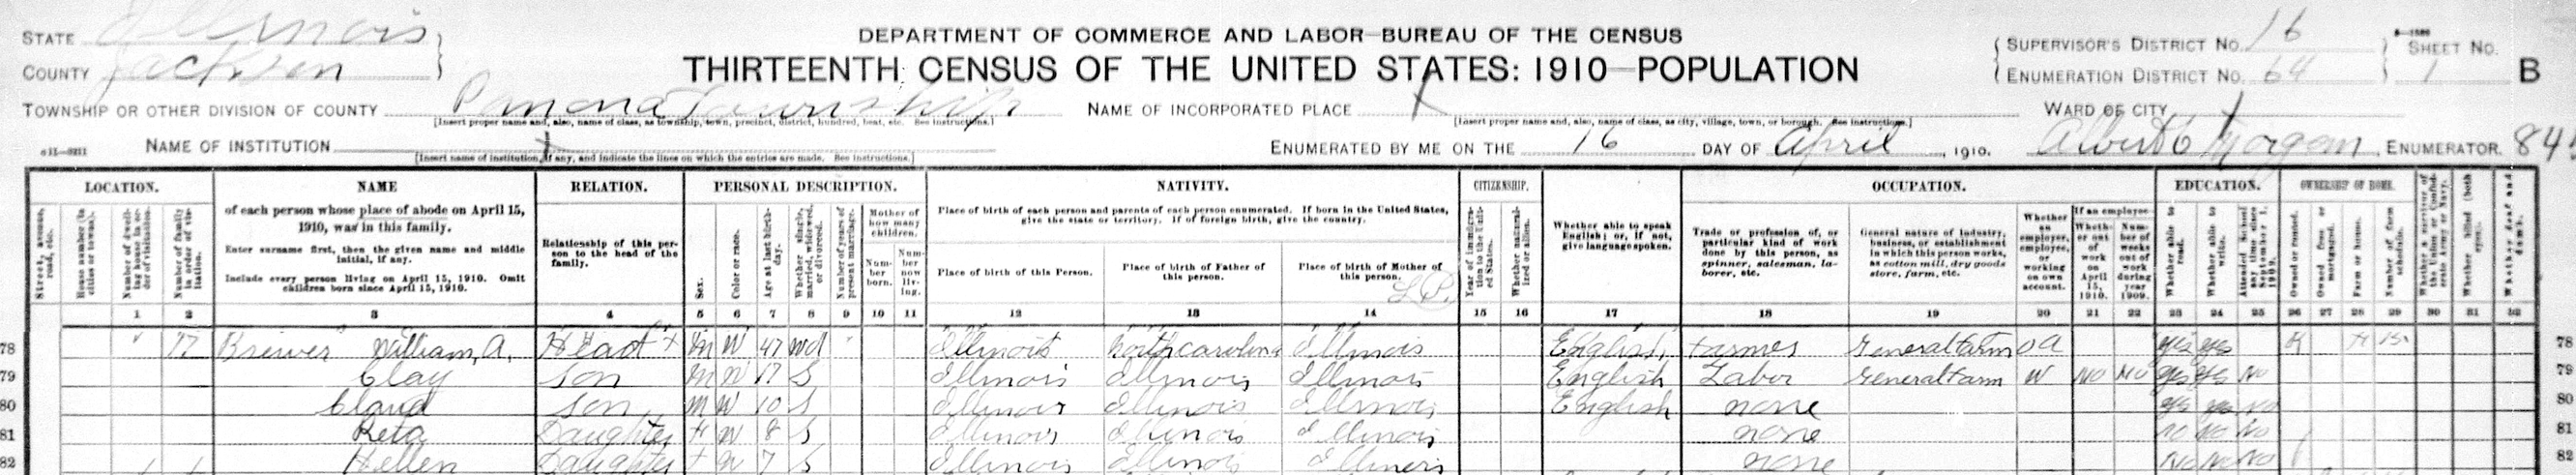 DEPARTMENT OF COMMERCE AND LABOR—BUREAU OF THE CENSUS
THIRTEENTH CENSUS OF THE UNITED STATES: 1910—POPULATION
STATE Illinois
COUNTY Jackson
SUPERVISOR'S DISTRICT No. 16
ENUMERATION DISTRICT No. 64
SHEET No. 1 B
TOWNSHIP OR OTHER DIVISION OF COUNTY Pomona Township
[Insert proper name and, also, name of class, as township, town, precinct, district, hundred, beat, etc. See instructions.]
NAME OF INCORPORATED PLACE X
[Insert proper name and, also, name of class, as city, village, town, or borough. See instructions.]
WARD OF CITY
NAME OF INSTITUTION X
[Insert name of institution, if any, and indicate the lines on which the entries are made. See instructions.]
ENUMERATED BY ME ON THE 16 DAY OF April, 1910. Morgan, ENUMERATOR. 84
LOCATION. NAME RELATION. PERSONAL DESCRIPTION. NATIVITY. CITIZENSHIP. OCCUPATION. EDUCATION. OWNERSHIP OF HOME.
Street, avenue, road, etc.
House number (in cities or towns).
Number of dwelling house in order of visitation.
Number of family in order of visitation.
of each person whose place of abode on April 15, 1910, was in this family.
Enter surname first, then the given name and middle initial, if any.
Include every person living on April 15, 1910. Omit children born since April 15, 1910.
Relationship of this person to the head of the family.
Sex.
Color or race.
Age at last birthday.
Whether single, married, widowed, or divorced.
Number of years of present marriage.
Mother of how many children.
Number born.
Number now living.
Place of birth of each person and parents of each person enumerated. If born in the United States, give the state or territory. If of foreign birth, give the country.
Place of birth of this Person.
Place of birth of Father of this person.
Place of birth of Mother of this person.
Year of immigration to the United States.
Whether naturalized or alien.
Whether able to speak English; or, if not, give language spoken.
Trade or profession of, or particular kind of work done by this person, as spinner, salesman, laborer, etc.
General nature of industry, business, or establishment in which this person works, as cotton mill, dry goods store, farm, etc.
Whether an employer, employee, or working on own account.
If an employee—
Whether out of work on April 15, 1910.
Number of weeks out of work during year 1909.
Whether able to read.
Whether able to write.
Attended school any time since September 1, 1909.
Owned or rented.
Owned free or mortgaged.
Farm or house.
Number of farm schedule.
Whether a survivor of the Union or Confederate Army or Navy.
Whether blind (both eyes).
Whether deaf and dumb.
1 2 3 4 5 6 7 8 9 10 11 12 13 14 15 16 17 18 19 20 21 22 23 24 25 26 27 28 29 30 31 32
78 17 Brewer William, A. Head M W 47 wd Illinois North carolina Illinois English Farmer General Farm OA yes yes 78
79 Clay Son M W 17 S Illinois Illinois Illinois English Labor General Farm W NO NO yes yes NO 79
80 Claud Son M W 10 S Illinois Illinois Illinois English none yes yes NO 80
81 Reta Daughter F W 8 S Illinois Illinois Illinois none NO NO NO 81
82 Hellen Daughter F W 7 S Illinois Illinois Illinois none NO NO NO 82